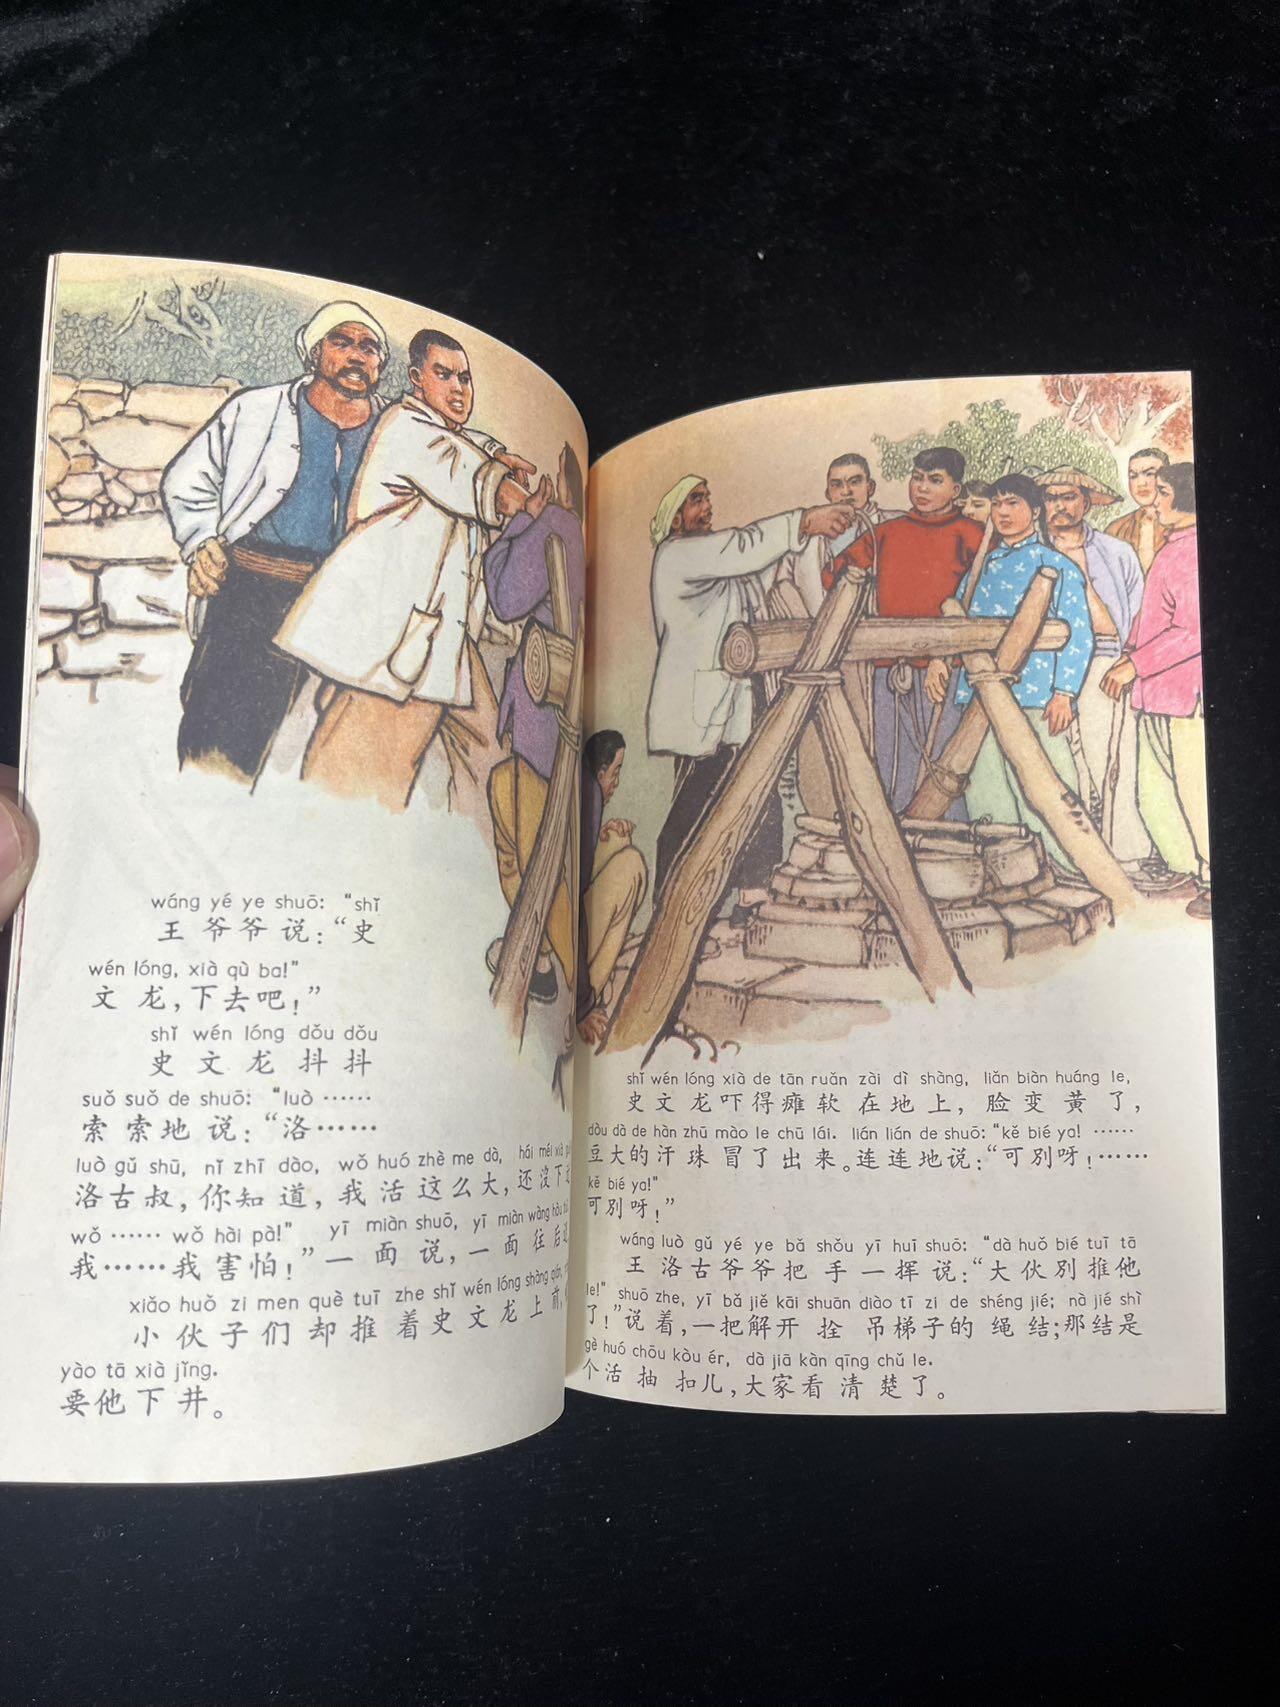 wáng yé ye shuō: “shǐ
王爷爷说：“史
wén lóng, xià qù ba!”
文龙，下去吧！”
shǐ wén lóng dǒu dǒu
史文龙抖抖
suǒ suǒ de shuō: “luò ……
索索地说：“洛……
luò gǔ shū, nǐ zhī dào, wǒ huó zhè me dà, hái méi xià
洛古叔，你知道，我活这么大，还没下
wǒ …… wǒ hài pà!” yī miàn shuō, yī miàn wàng hòu
我……我害怕！”一面说，一面往后
xiǎo huǒ zi men què tuī zhe shǐ wén lóng shàng qián,
小伙子们却推着史文龙上前，
yào tā xià jǐng.
要他下井。
shǐ wén lóng xià de tān ruǎn zài dì shàng, liǎn biàn huáng le,
史文龙吓得瘫软在地上，脸变黄了，
dòu dà de hàn zhū mào le chū lái. lián lián de shuō: “kě bié ya! ……
豆大的汗珠冒了出来。连连地说：“可别呀！……
kě bié ya!”
可别呀！”
wáng luò gǔ yé ye bǎ shǒu yī huī shuō: “dà huǒ bié tuī tā
王洛古爷爷把手一挥说：“大伙别推他
le!” shuō zhe, yī bǎ jiě kāi shuān diào tī zi de shéng jié; nà jié shì
了！”说着，一把解开拴吊梯子的绳结；那结是
gè huó chōu kòu ér, dà jiā kàn qīng chǔ le.
个活抽扣儿，大家看清楚了。